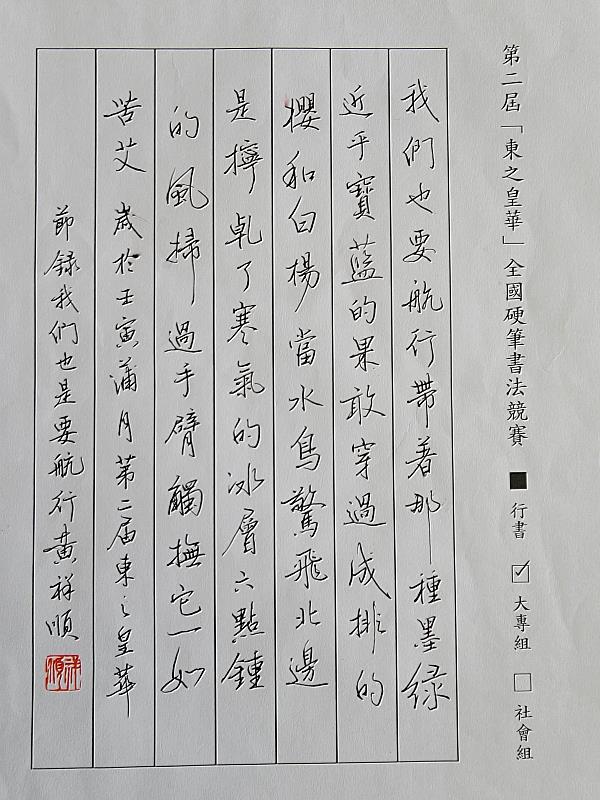 第二屆「東之皇華」全國硬筆書法競賽 ■ 行書 ☑ 大專組 □ 社會組
我們也要航行帶着那一種墨綠
近乎寶藍的果敢穿過成排的
櫻和白楊當水鳥驚飛北邊
是擰乾了寒氣的冰層六點鍾
的風掃過手臂觸撫它一如
苦艾 歲於壬寅蒲月第二屆東之皇華
節錄我們也是要航行黃祥順
祥順